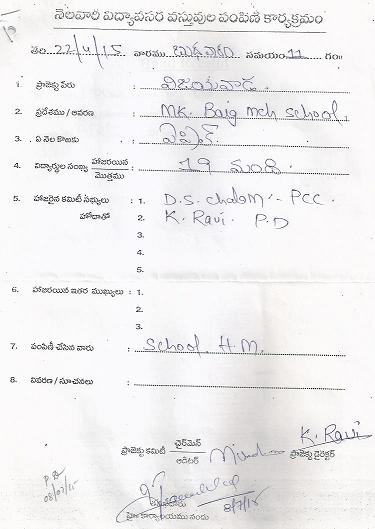 నెలవారి విద్యాపసర వస్తువుల పంపిణి కార్యక్రమం
తేది. 22/4/15 వారము బుధవారం సమయం 11 గం॥
1. ప్రాజెక్టు పేరు : విజయవాడ.
2. ప్రదేశము / ఆవరణ : MK. Baig mch school.
3. ఏ నెల కొఱకు : ఏప్రిల్
4. విద్యార్థుల సంఖ్య హాజరయిన / మొత్తము : 19 మంది.
5. హాజరైన కమిటీ సభ్యులు : 1. D.S. chalam - PCC.
హోదాతో 2. K. Ravi. P.D
3.
4.
5.
6. హాజరయిన ఇతర ముఖ్యులు : 1.
2.
3.
7. పంపిణీ చేసిన వారు : School. H.M.
8. వివరణ / సూచనలు :
K. Ravi
ప్రాజెక్టు కమిటీ ఛైర్మెన్ / ఆడిటర్ ప్రాజెక్టు డైరెక్టర్
08/07/15
8/7/15
హై కార్యాలయము నందు